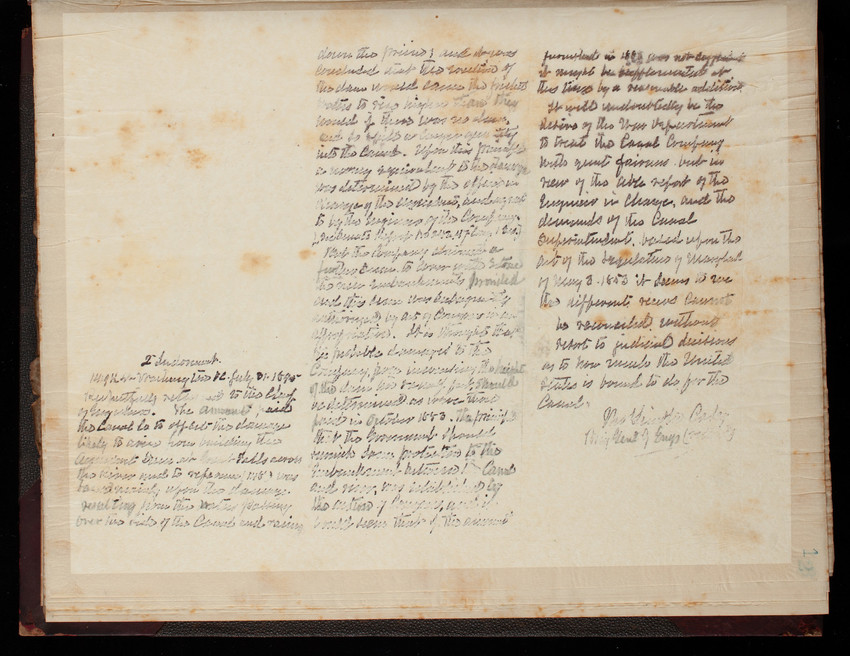 2d Indorsement.
Washington DC. July 31. 1885
Respectfully returned to the Chief
of Engineers. The amount paid
the Canal Co to offset the damage
likely to arise from building the
dam at Great Falls across
the river and to refence was
based mainly upon the damage
resulting from the water passing
over the side of the Canal and raising
down the prism; and it was
concluded that the erection of
the dam would cause the
water to rise higher than they
would if there was no dam,
and so spill a larger quantity
into the Canal. Upon this principle
a money equivalent to the damage
was determined by the officer in
charge of the Aqueduct, and agreed
to by the Engineer of the Company
But the Company claimed a
further sum to cover
the new embankments provided
and this sum was subsequently
authorized by act of Congress in an
appropriation. It is thought that
the probable damages to the
Company, from increasing the height
of the dam should
be determined as were those
paid in October 1883. The principle
that the Government should
furnish some protection to the
Embankment between Canal
and river, was established by
the action of Congress, and it
would seem that if the amount
furnished in 1883 was not
it might be supplemented at
this time by a reasonable addition.
It will undoubtedly be the
desire of the War Department
to treat the Canal Company
with great fairness but in
view of the able report of the
Engineer in charge, and the
demands of the Canal
Superintendent, based upon the
act of the Legislature of Maryland
of May 3. 1853 it seems to me
the different views cannot
be reconciled without
resort to judicial decisions
as to how much the United
States is bound to do for the
Canal.